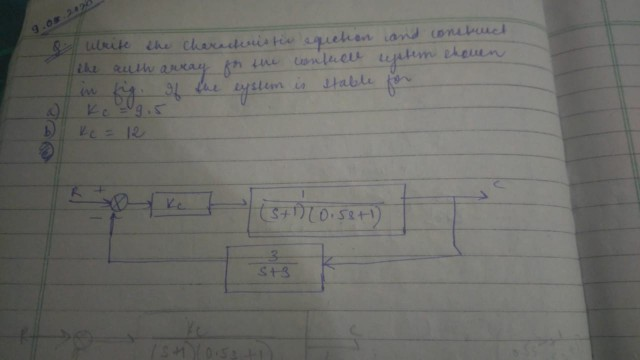 9.05.2020
Q. Write the characteristic equation and construct
the routh array for the control system shown
in fig. If the system is stable for
a) Kc = 9.5
b) Kc = 12
R + Kc 1 C
− (S+1)(0.5s+1)
3
S+3
R Kc C
(S+1)(0.5s+1)